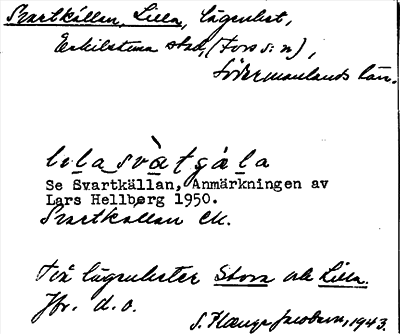 Svartkällan, Lilla, lägenhet,
Eskilstuna stad, (Fors s:n),
Södermanlands län.
lila svàtgäla
Se Svartkällan, Anmärkningen av
Lars Hellberg 1950.
Svartkällan ek.
Två lägenheter Stora och Lilla.
Jfr. d. o.
S. Jacobson, 1943.